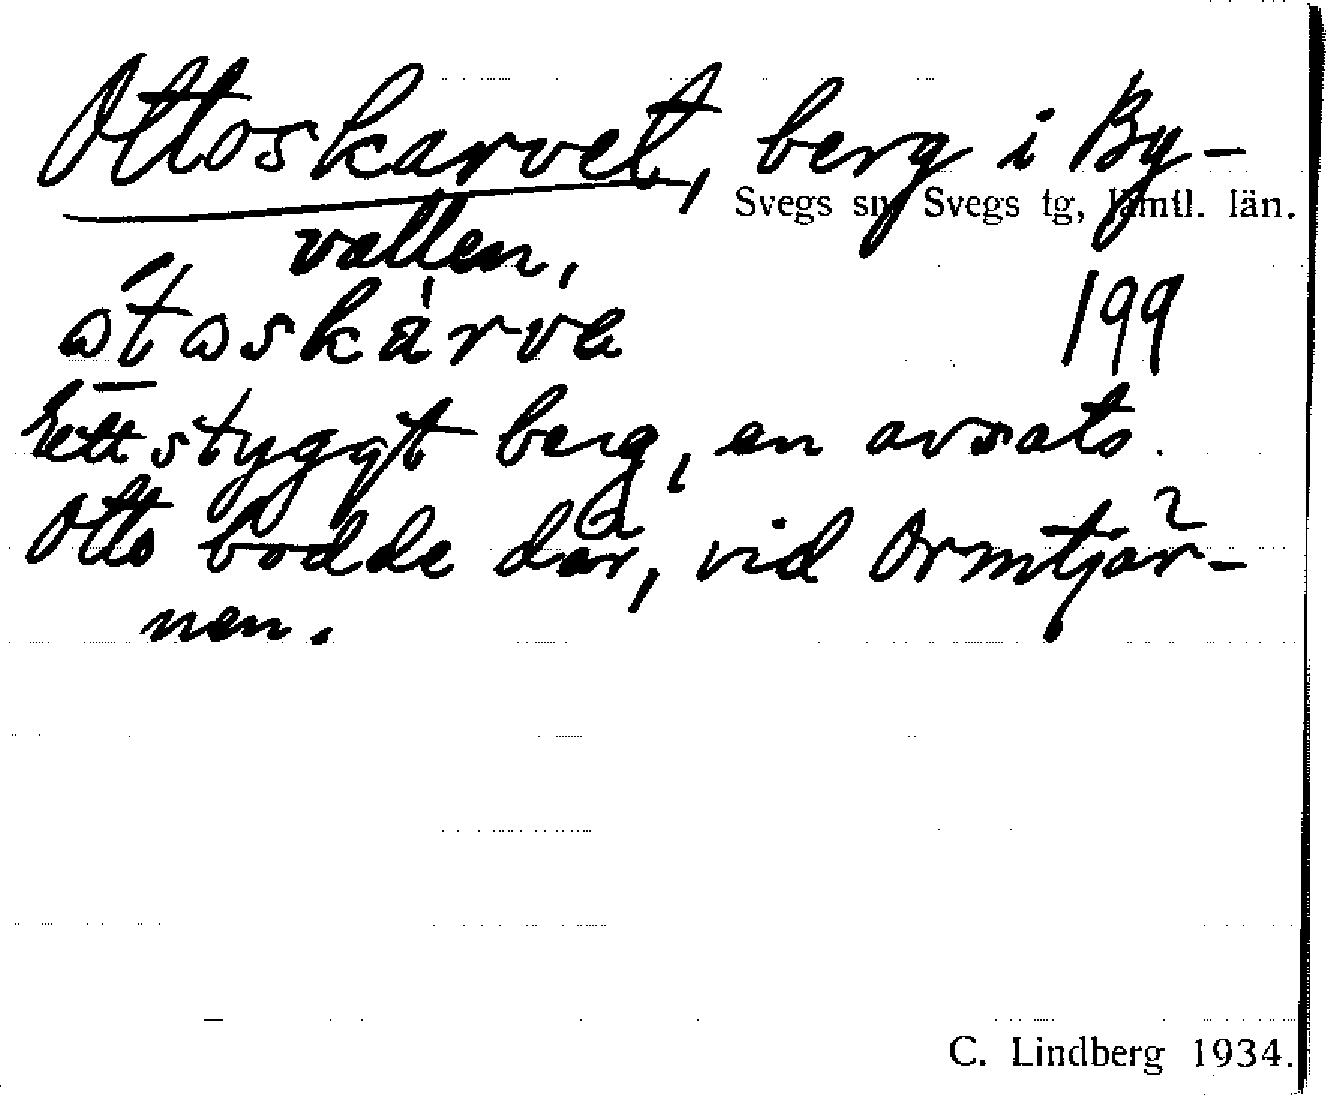 Ottoskarvet, berg i By-
Svegs sn, Svegs tg, Jämtl. län.
vallen,
199
Ett styggt berg, en avsats.
Otto bodde där, vid Ormtjär-
nen.
C. Lindberg 1934.